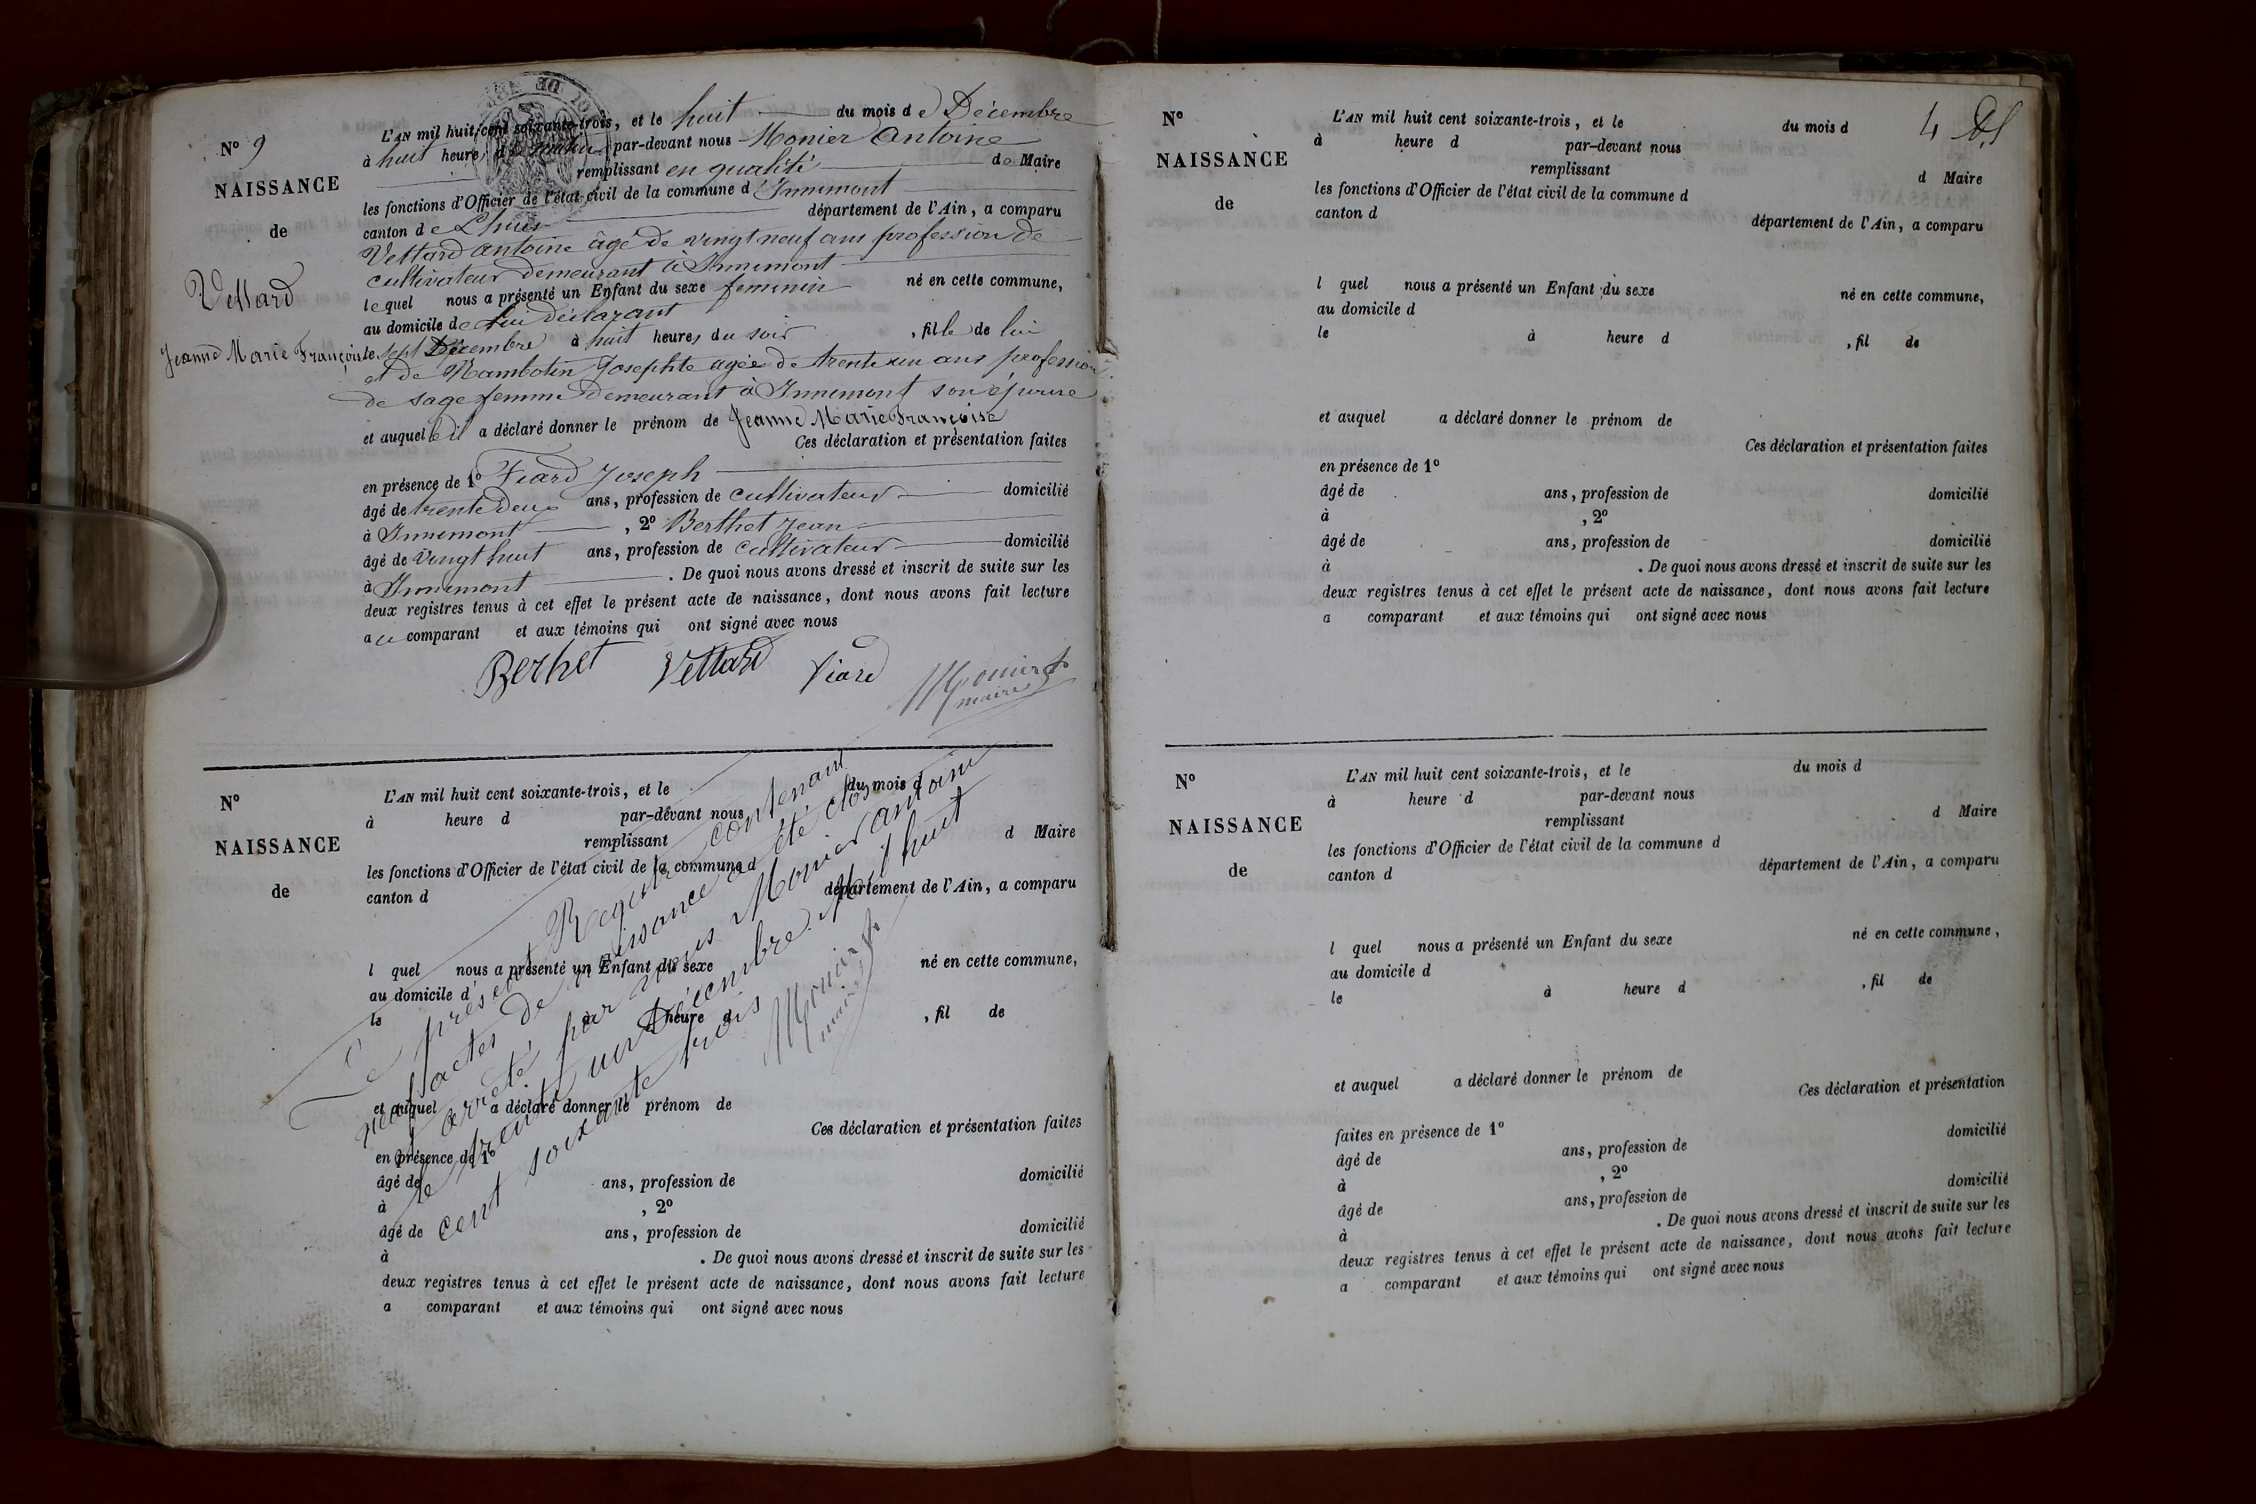 N° 9
NAISSANCE
de
Vettard
Jeanne Marie Françoise
L'AN mil huit cent soixante-trois, et le huit du mois de Décembre
à huit heures du matin par-devant nous Monier Antoine
remplissant en qualité de Maire
les fonctions d'Officier de l'état civil de la commune d'Innimont
canton de Lhuis département de l'Ain, a comparu
Vettard antoine âgé de vingt neuf ans profession de
cultivateur demeurant à Innimont
lequel nous a présenté un Enfant du sexe feminin né en cette commune,
au domicile de lui déclarant
le sept Décembre à huit heures du soir, fille de lui
et de Rambotin Josephte agée de trente un ans profession
de sage femme demeurant à Innimont son épouse
et auquel il a déclaré donner le prénom de Jeanne Marie Françoise
Ces déclaration et présentation faites
en présence de 1° Viard Joseph
âgé de trente deux ans, profession de cultivateur domicilié
à Innimont, 2° Berthet Jean
âgé de vingt huit ans, profession de cultivateur domicilié
à Innimont. De quoi nous avons dressé et inscrit de suite sur les
deux registres tenus à cet effet le présent acte de naissance, dont nous avons fait lecture
au comparant et aux témoins qui ont signé avec nous
Berhet Vettard Viard Monier
maire
N°
NAISSANCE
de
L'AN mil huit cent soixante-trois, et le du mois d
à heure d par-devant nous
remplissant d Maire
les fonctions d'Officier de l'état civil de la commune d
canton d département de l'Ain, a comparu
l quel nous a présenté un Enfant du sexe né en cette commune,
au domicile d
le à heure d , fil de
et auquel a déclaré donner le prénom de
Ces déclaration et présentation faites
en présence de 1°
âgé de ans, profession de domicilié
à , 2°
âgé de ans, profession de domicilié
à . De quoi nous avons dressé et inscrit de suite sur les
deux registres tenus à cet effet le présent acte de naissance, dont nous avons fait lecture
a comparant et aux témoins qui ont signé avec nous
Le présent Registre contenant
neuf actes de naissance a été clos
et arrêté par nous Monier antoine
le trente un Décembre Mil huit
cent soixante trois
Monier
maire
4
N°
NAISSANCE
de
L'AN mil huit cent soixante-trois, et le du mois d
à heure d par-devant nous
remplissant d Maire
les fonctions d'Officier de l'état civil de la commune d
canton d département de l'Ain, a comparu
l quel nous a présenté un Enfant du sexe né en cette commune,
au domicile d
le à heure d , fil de
et auquel a déclaré donner le prénom de
Ces déclaration et présentation faites
en présence de 1°
âgé de ans, profession de domicilié
à , 2°
âgé de ans, profession de domicilié
à . De quoi nous avons dressé et inscrit de suite sur les
deux registres tenus à cet effet le présent acte de naissance, dont nous avons fait lecture
a comparant et aux témoins qui ont signé avec nous
N°
NAISSANCE
de
L'AN mil huit cent soixante-trois, et le du mois d
à heure d par-devant nous
remplissant d Maire
les fonctions d'Officier de l'état civil de la commune d
canton d département de l'Ain, a comparu
l quel nous a présenté un Enfant du sexe né en cette commune,
au domicile d
le à heure d , fil de
et auquel a déclaré donner le prénom de
Ces déclaration et présentation
faites en présence de 1°
âgé de ans, profession de domicilié
à , 2°
âgé de ans, profession de domicilié
à . De quoi nous avons dressé et inscrit de suite sur les
deux registres tenus à cet effet le présent acte de naissance, dont nous avons fait lecture
a comparant et aux témoins qui ont signé avec nous